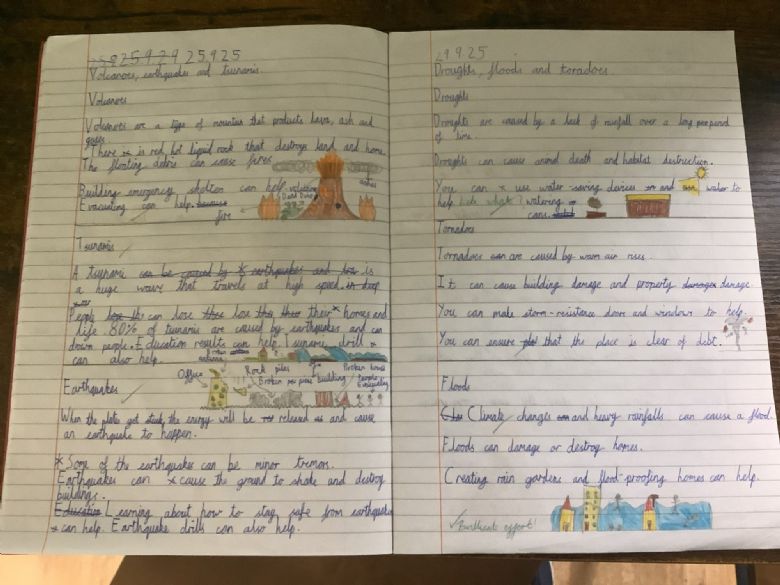 25.9.24 25.9.25
Volcanoes, earthquakes and tsunamis.
Volcanoes
Volcanoes are a type of mountain that products lava, ash and
gases
There is red hot liquid rock that destroys land and home.
The floating debris can cause fires.
Building emergency shelters can help.
Evacuating can help. because
volcano
Dead Dino
ashes
fire
Tsunamis
A tsunami can be caused by earthquakes and is
a huge wave that travels at high speed. in deep
People can lose their homes and
life. 80% of tsunamis are caused by earthquakes and can
down people. Education results can help. Tsunami drill
can also help.
Office
Rock piles
Broken building
Broken house
People Evacuating
Earthquakes
When the plates get stuck, the energy will be released and cause
an earthquake to happen.
* Some of the earthquakes can be minor tremors.
Earthquakes can cause the ground to shake and destroy
buildings.
Education Learning about how to stay safe from earthquakes
can help. Earthquake drills can also help.
29.9.25
Droughts, floods and tornadoes.
Droughts
Droughts are caused by a lack of rainfall over a long period
of time.
Droughts can cause animal death and habitat destruction.
You can use water-saving devices and water to
help help what? watering
cans.
Tornados
Tornadoes are caused by warm air rises.
It can cause building damage and property damage.
You can make storm-resistance doors and windows to help.
You can ensure that the place is clear of debt.
Floods
Climate changes and heavy rainfalls can cause a flood.
Floods can damage or destroy homes.
Creating rain gardens and flood-proofing homes can help.
✓ Brilliant effort!